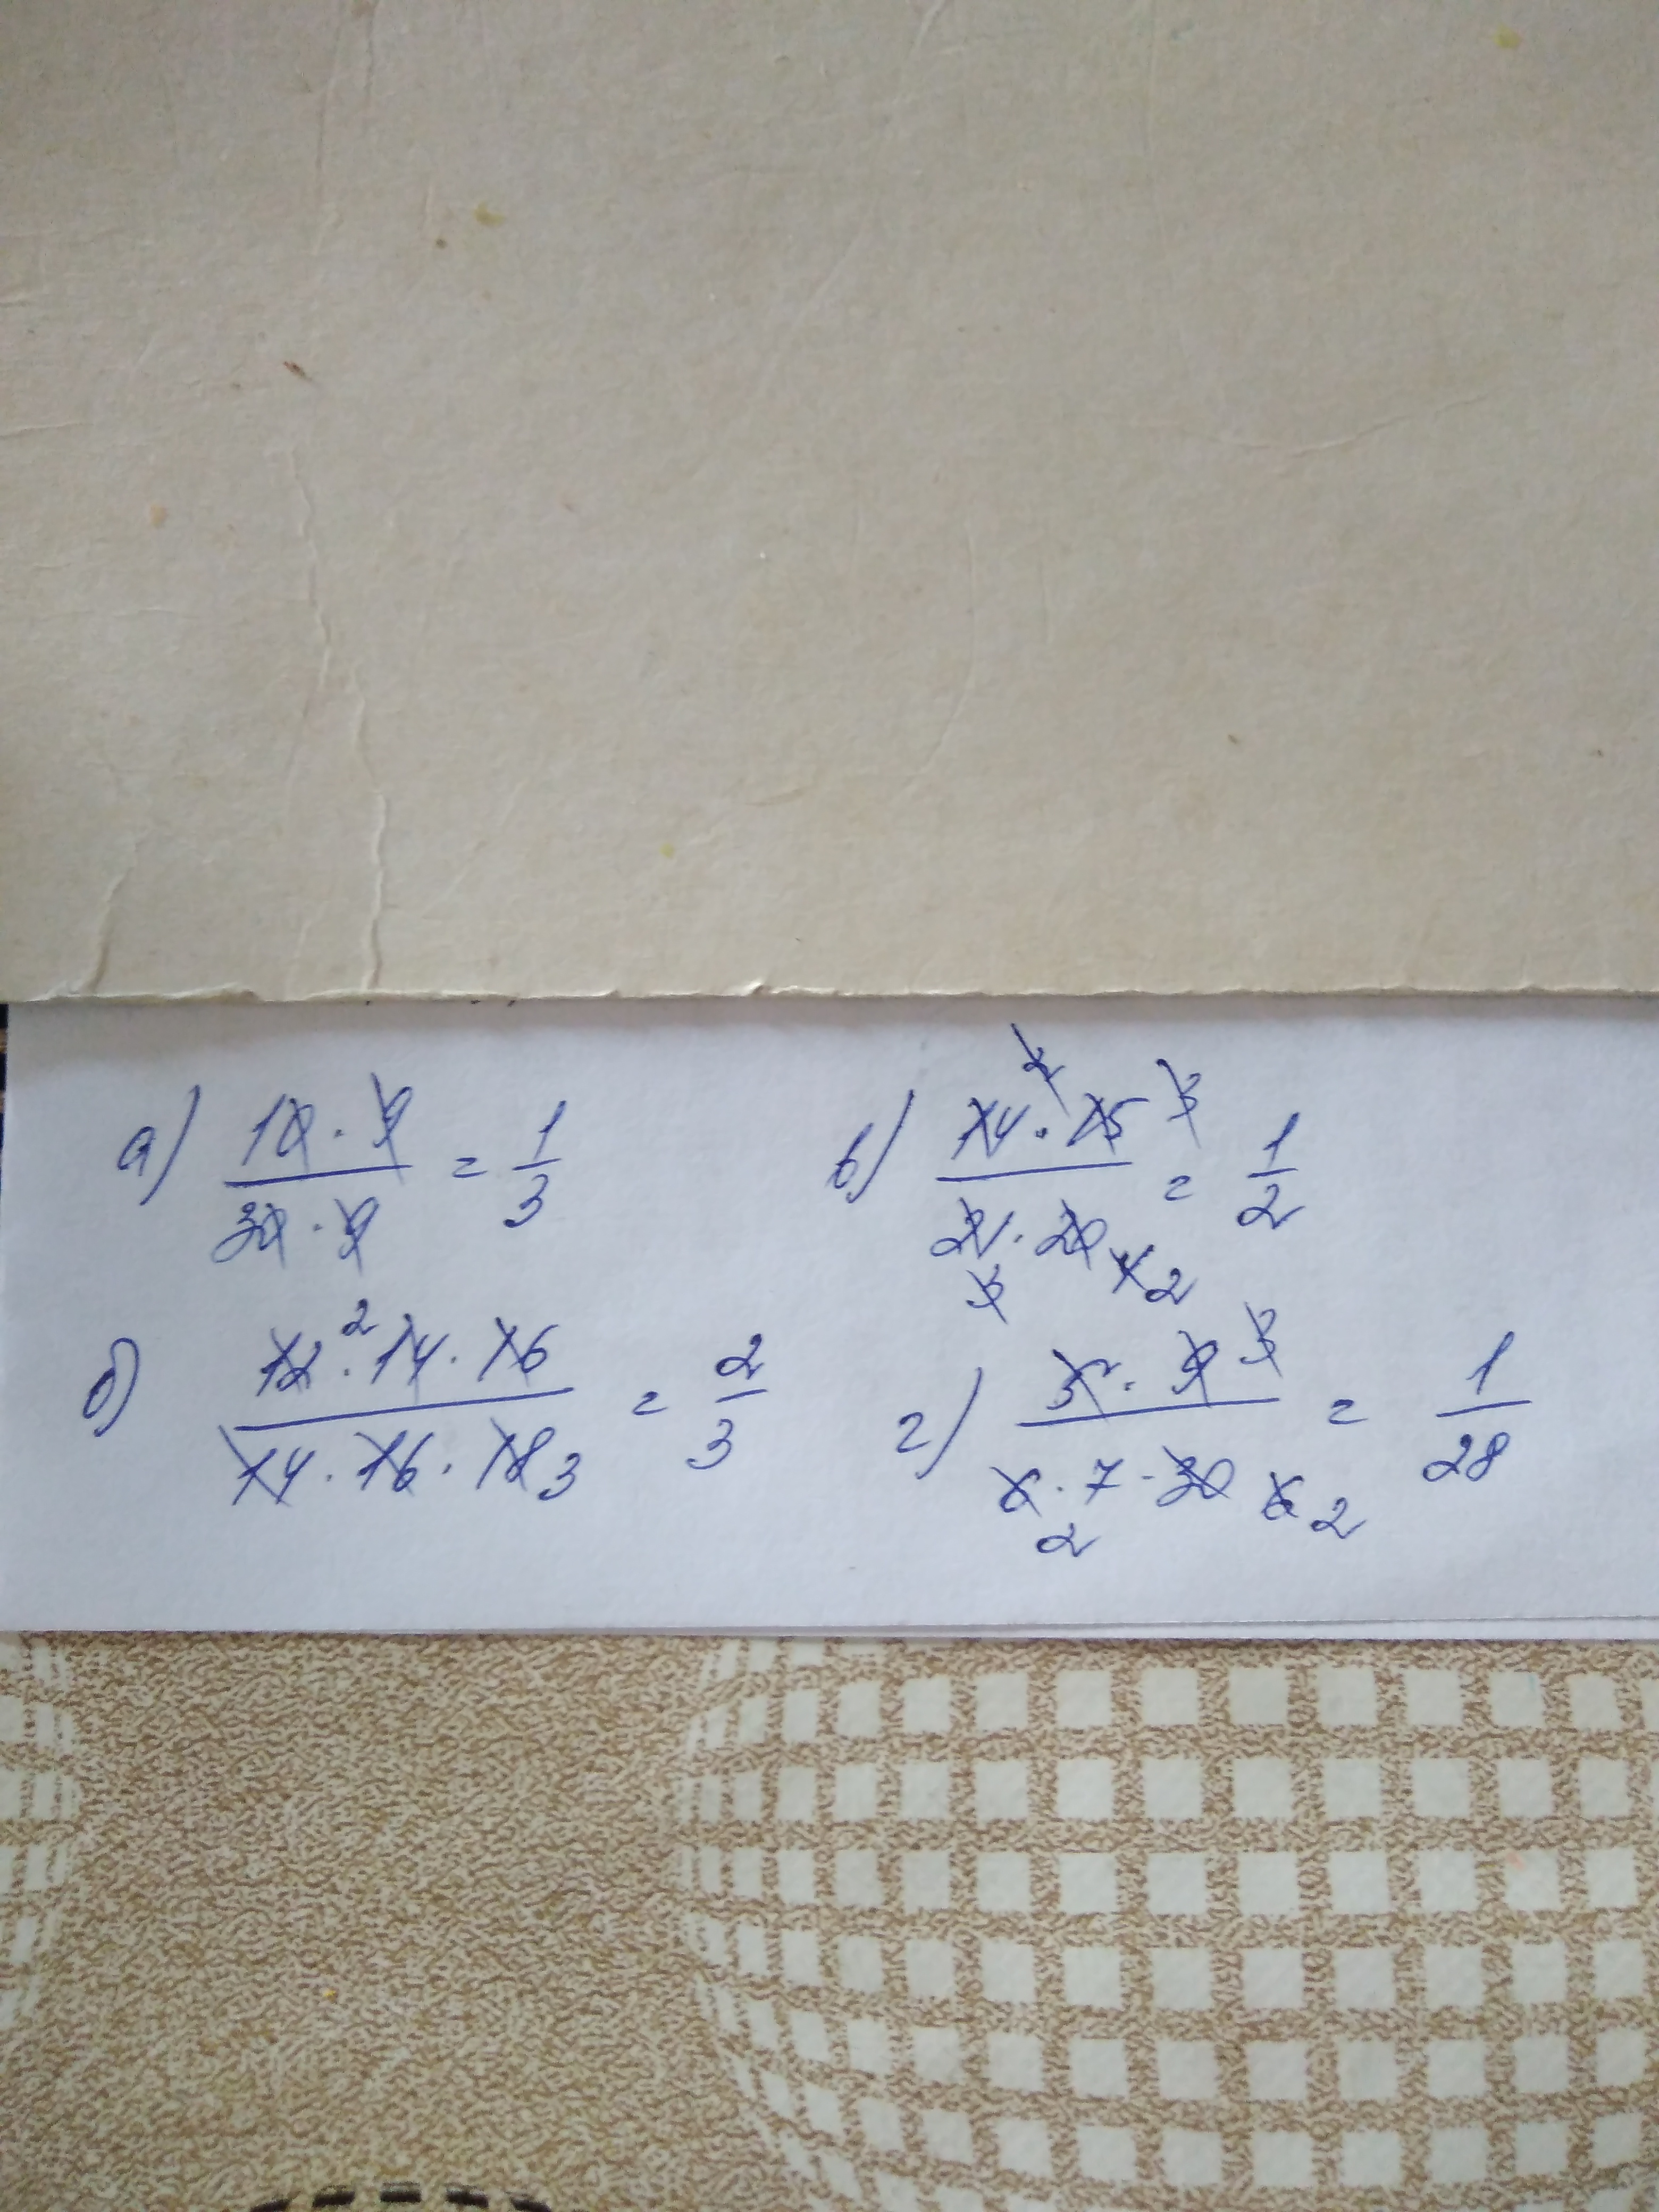 а) 10 · 9 / 30 · 9 = 1/3
в) 14 2 · 15 3 / 21 3 · 20 4 2 = 1/2
б) 12 2 · 14 · 16 / 14 · 16 · 18 3 = 2/3
г) 5 · 9 3 / 6 2 · 7 · 30 6 2 = 1/28